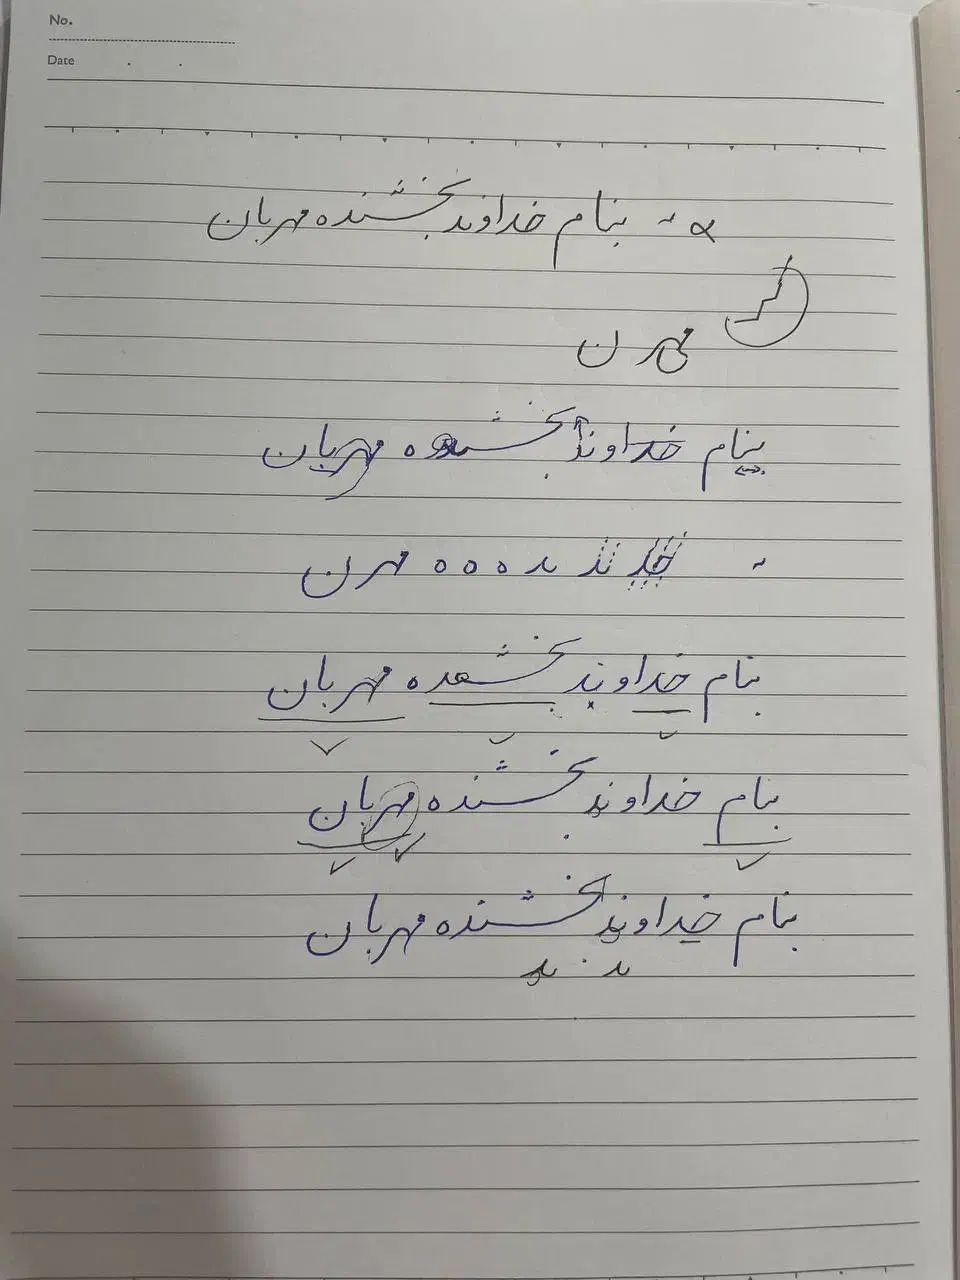 No.
Date
بنام خداوند بخشنده مهربان
مهر ن
بنام خداوند بخشنده مهربان
خد ند ند ه ه ه مهر ن
بنام خداوند بخشنده مهربان
بنام خداوند بخشنده مهربان
بنام خداوند بخشنده مهربان